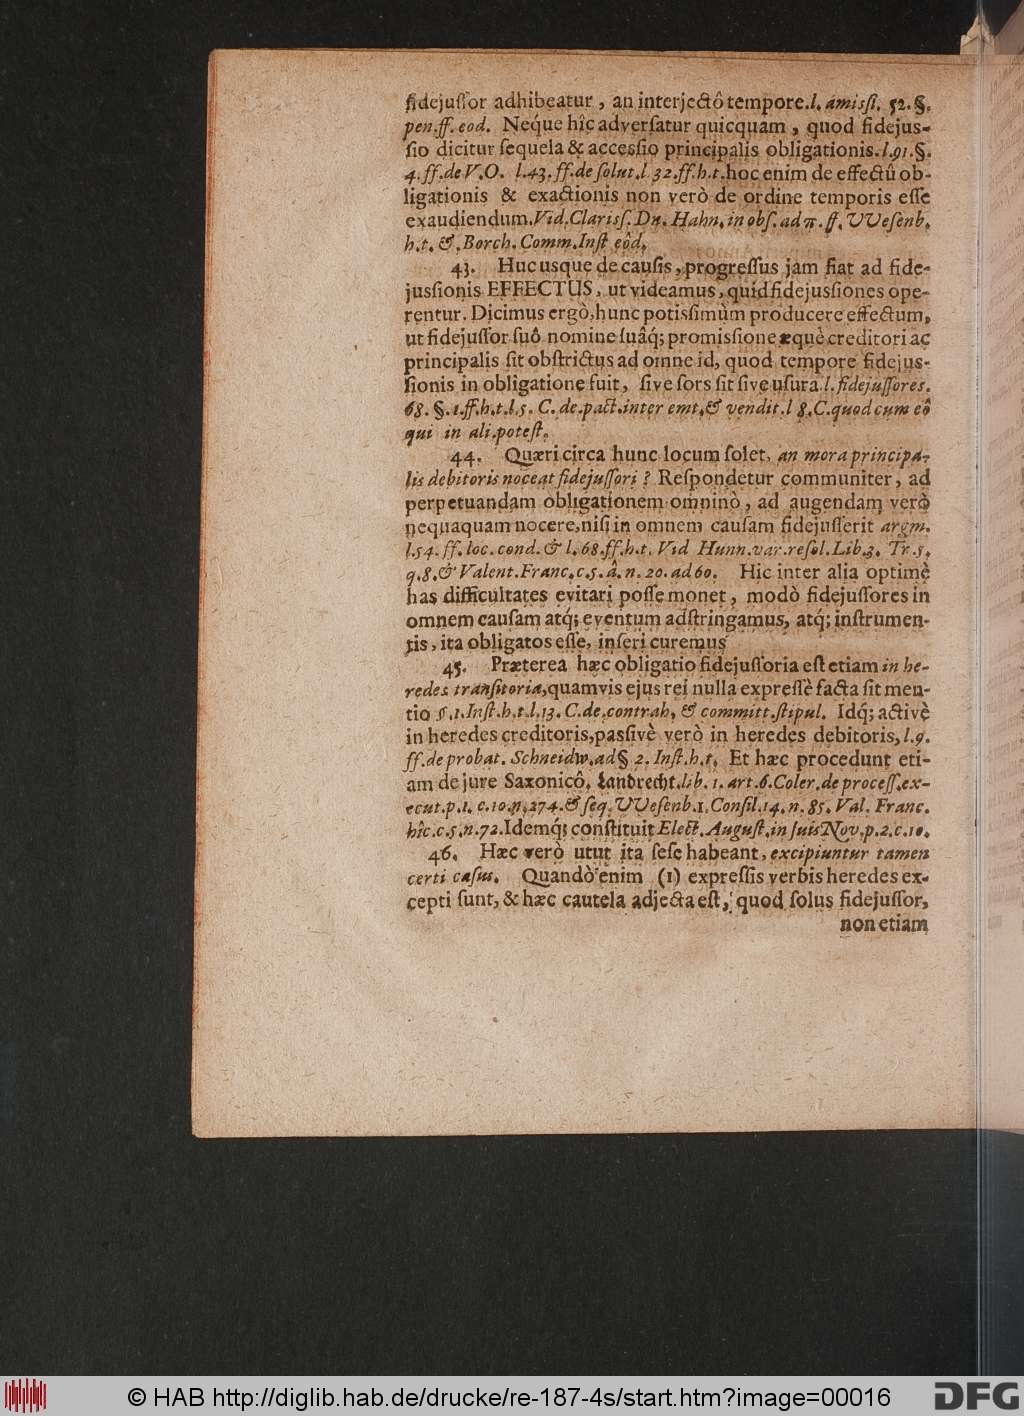 fidejuſſor adhibeatur, an interjectô tempore. l. amiſſi. 52. §.
pen. ff. eod. Neq́ue hîc adverſatur quicquam, quod fidejus-
ſio dicitur ſequela & acceſſio principalis obligationis. l. 91. §.
4. ff. de V. O. l. 43. ff. de ſolut. l 32. ff. h. t. hoc enim de effectû ob-
ligationis & exactionis non verò de ordine temporis eſſe
exaudiendum. Vid. Clariſſ. Dn. Hahn. in obſ. ad π. ff. VVeſenb.
h. t. & Borch. Comm. Inſt eôd.
43. Huc usque de cauſis, progreſſus jam fiat ad fide-
jusſionis EFFECTUS, ut videamus, quid fidejusſiones ope-
rentur. Dicimus ergò, hunc potisſimùm producere effectum,
ut fidejuſſor ſuô nomine ſuâq́; promiſſione æquè creditori ac
principalis ſit obſtrictus ad omne id, quod tempore fidejus-
ſionis in obligatione fuit, ſive ſors ſit ſive uſura. l. fidejuſſores.
68. §. 1. ff. h. t. l. 5. C. de pact. inter emt. & vendit. l 8. C. quod cum eô
qui in ali. poteſt.
44. Quæri circa hunc locum ſolet, an mora principa-
lis debitoris noceat fidejuſſori? Reſpondetur communiter, ad
perpetuandam obligationem omninò, ad augendam verò
nequaquam nocere, niſi in omnem cauſam fidejuſſerit argm.
l. 54. ff. loc. cond. & l. 68. ff. h. t. Vid Hunn. var. reſol. Lib. 3. Tr. 5.
q. 8. & Valent. Franc. c. 5. â. n. 20. ad 60. Hic inter alia optimè
has difficultates evitari poſſe monet, modò fidejuſſores in
omnem cauſam atq́; eventum adſtringamus, atq́; inſtrumen-
tis, ita obligatos eſſe, inſeri curemus
45. Præterea hæc obligatio fidejuſſoria eſt etiam in he-
redes tranſitoria, quamvis ejus rei nulla expreſſè facta ſit men-
tio §. 1. Inſt. h. t. l. 13. C. de contrah. & committ. ſtipul. Idq́; activè
in heredes creditoris, paſſivè verò in heredes debitoris, l. 9.
ff. de probat. Schneidw. ad § 2. Inſt. h. t. Et hæc procedunt eti-
am de jure Saxonicô, Landrecht. lib. 1. art. 6. Coler. de proceſſ. ex-
ecut. p. 1. c. 10. n. 274. & ſeq. VVeſenb. 1. Conſil. 14. n. 85. Val. Franc.
hîc. c. 5. n. 72. Idemq́; conſtituit Elect. Auguſt. in ſuis Nov. p. 2. c. 10.
46. Hæc verò utut ita ſeſe habeant, excipiuntur tamen
certi caſus. Quandò enim (1) expreſſis verbis heredes ex-
cepti ſunt, & hæc cautela adjecta eſt, quod ſolus fidejuſſor,
non etiam
© HAB http://diglib.hab.de/drucke/re-187-4s/start.htm?image=00016
DFG